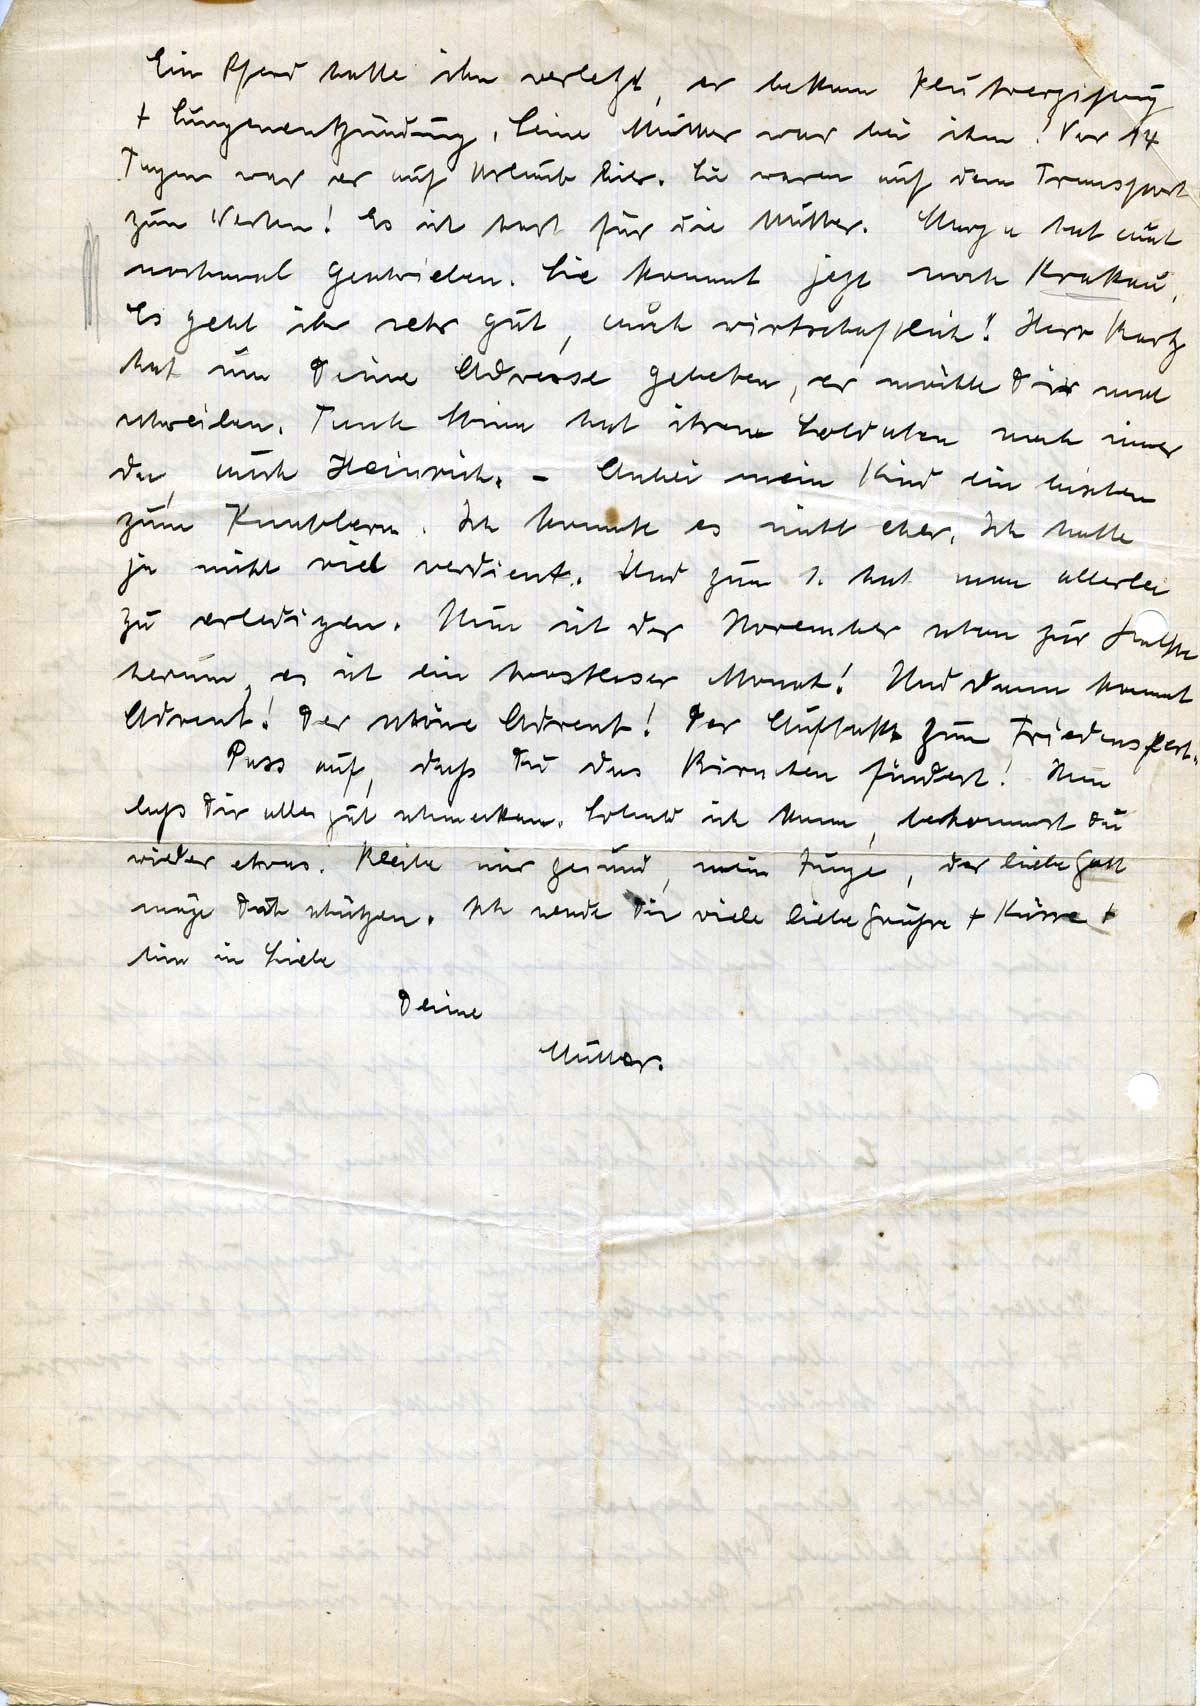 Ein Pferd hatte ihn verletzt, er bekam Blutvergiftung
+ Lungenentzündung, Seine Mutter war bei ihm! Vor 14
Tagen war er auf Urlaub hier. Sie waren auf dem Transport
zum Westen! Es ist hart für die Mutter. Marga hat auch
nochmal geschrieben. Sie kommt jetzt nach Krakau,
Es geht ihr sehr gut, auch wirtschaftlich! Herr
hat um Deine Adresse gebeten, er möchte Dir mal
schreiben. Tante Minna hat ihren Soldaten noch immer
da, auch Heinrich. - Anbei mein Kind ein bischen
zum Knabbern. Ich konnte es nicht eher. Ich hatte
ja nicht viel verdient. Und zum 1. hat man allerlei
zu erledigen. Nun ist der November schon zur Hälfte
herum, es ist ein trostloser Monat! Und dann kommt
Advent! Der schöne Advent! Der Auftakt zum Friedensfest.
Pass auf, daß Du das Birnchen findest! Nun
laß Dir alles gut schmecken. Sobald ich kann, bekommst Du
wieder etwas. Bleibe mir gesund, mein Junge, der liebe Gott
möge Dich schützen. Ich sende Dir viele liebe Grüße + Küsse +
bin in Liebe
Deine
Mutter.